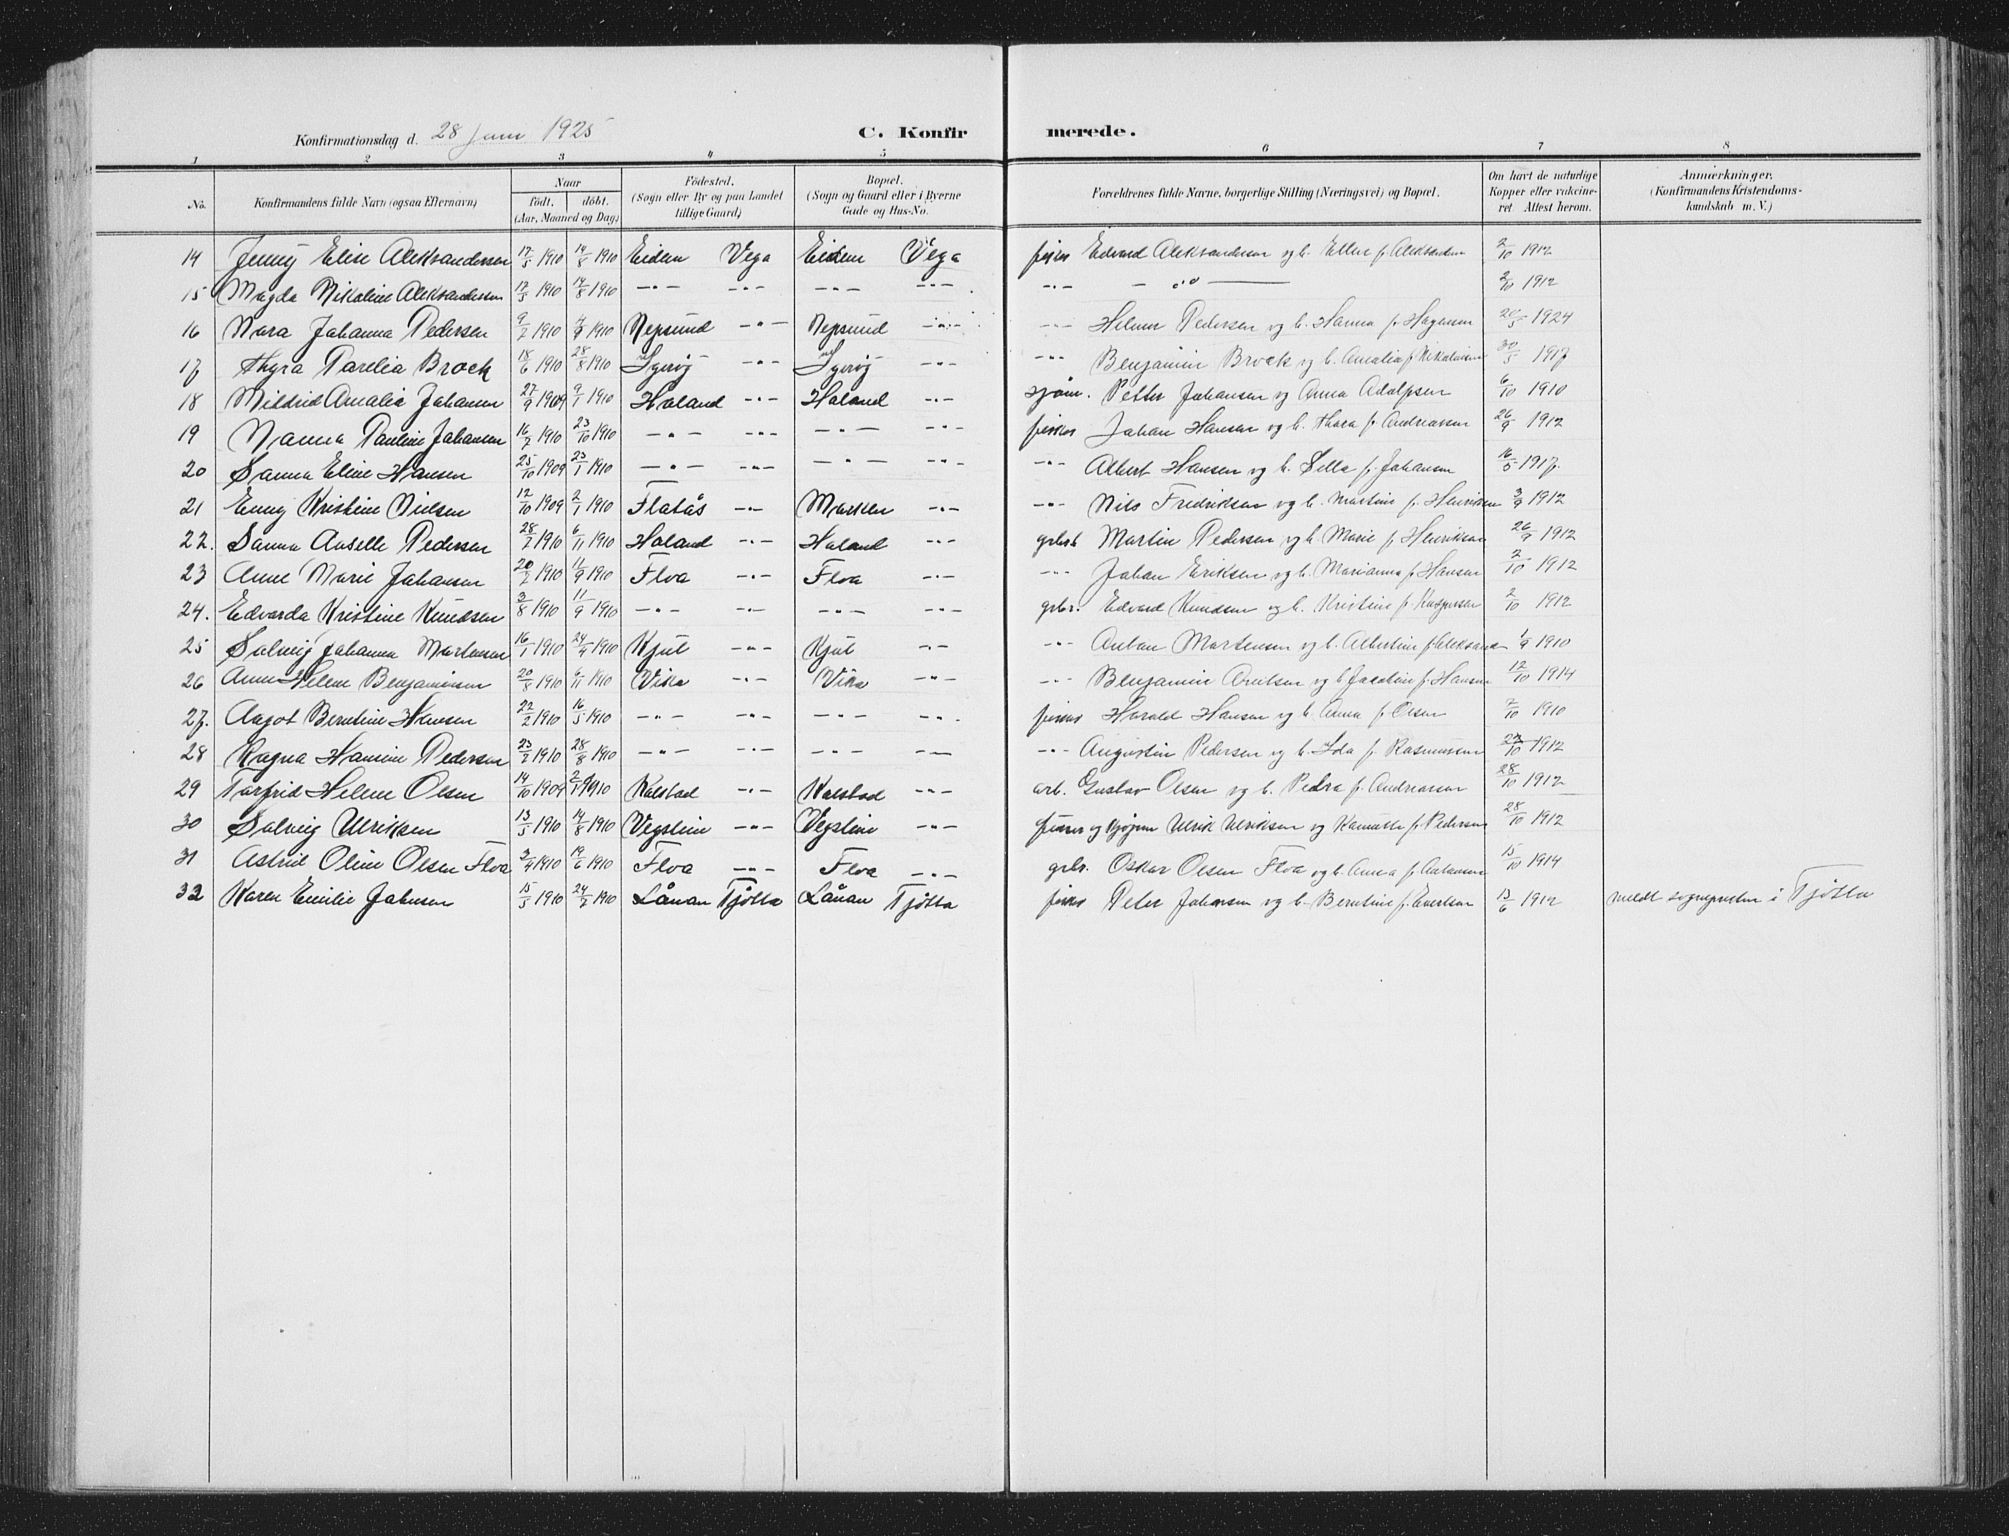 Konfirmationsdag d. 28 juni 1925 C. Konfirmerede.
1 2 3 4 5 6 7 8
No. Konfirmandens fulde Navn (ogsaa Efternavn) Naar födt. döbt. (Aar, Maaned og Dag) Födested. (Sogn eller By og paa Landet tillige Gaard) Bopæl. (Sogn og Gaard eller i Byerne Gade og Hus-No. Forældrenes fulde Navne, borgerlige Stilling (Næringsvei) og Bopæl. Om havt de naturlige Kopper eller vakcineret. Attest herom. Anmærkninger. (Konfirmandens Kristendomskundskab m. V.)
14 Jenny Elise Aleksandersen 17/5 1910 14/8 1910 Eidem Vega Eidem Vega fisker Edvard Aleksandersen og h. Ellen f. Aleksandersen 2/10 1912
15 Magda Nikoline Aleksandersen 17/5 1910 14/8 1910 -"- -"- -"- -"- -"- -"- 2/10 1912
16 Nora Johanna Pedersen 9/2 1910 4/9 1910 Repsund -"- Repsund -"- -"- Helmer Pedersen og h. Hanna f. Hagensen 20/5 1924
17 Thyra Parelia Brock 18/6 1910 28/8 1910 -"- -"- -"- Benjamin Brock og h. Amalia f. Nikolaisen 30/5 1917
18 Mildrid Amalia Johansen 27/9 1909 9/1 1910 Holand -"- Holand -"- sjöm. Petter Johansen og Anna Adolfsen 6/10 1910
19 Nanna Pauline Johansen 16/7 1910 23/10 1910 -"- -"- -"- -"- fisker Johan Hansen og h. Thora f. Andreassen 26/9 1912
20 Sanna Eline Hansen 25/10 1909 23/1 1910 -"- -"- -"- -"- -"- Albert Hansen og h. Sella f. Johansen 16/5 1917.
21 Enny Kristine Nielsen 12/10 1909 2/1 1910 Flatås -"- Marken -"- -"- Nils Fredriksen og h. Martine f. Henriksen 3/9 1912
22. Sanna Anselle Pedersen 28/7 1910 6/11 1910 Holand -"- Holand -"- Martin Pedersen og h. Marie f. Henriksen 26/9 1912
23 Anne Marie Johansen 20/7 1910 11/9 1910 Floa -"- Floa -"- -"- Johan Eriksen og h. Marianna f. Hansen 2/10 1912
24. Edvarda Kristine Knudsen 3/8 1910 11/9 1910 -"- -"- -"- -"- grbr. Edvard Knudsen og h. Kristine f. Kaspersen 2/10 1912
25 Solveig Johanna Mortensen 16/1 1910 24/4 1910 Kjul -"- Kjul -"- -"- Anton Mortensen og h. Albertine f. Aleksand 1/9 1910
26 Anna Helene Benjaminsen 20/8 1910 6/11 1910 Vika -"- Vika -"- -"- Benjamin Arntsen og h. Jacobine f. Hansen 12/10 1914
27. Aagot Berntine Hansen 22/2 1910 16/5 1910 -"- -"- -"- -"- fisker Harald Hansen og h. Anna f. Olsen 7/10 1910
28 Ragna Hansine Pedersen 23/2 1910 28/8 1910 -"- -"- -"- -"- -"- Augustin Pedersen og h. Ida f. Rasmussen 1912
29 Torfrid Helene Olsen 14/10 1909 1910 Kalstad -"- Kalstad -"- arb. Gustav Olsen og h. Pedra f. Andreassen 28/10 1912
30 Solveig Ulriksen 13/5 1910 14/8 1910 Vegstein -"- Vegstein -"- fisker og Ulrik Ulriksen og f. Pedersen 28/10 1912
31 Astrid Oline Olsen Floa 3/4 1910 19/6 1910 Floa -"- Floa -"- grbr. Oskar Olsen Floa og h. Anna f. Antonsen 15/10 1914
32 Karen Emilie Johnsen 15/5 1910 24/7 1910 Lånan Tjötta Lånan Tjötta fisker Peter Johansen og h. Berntine f. Evertsen 13/6 1912 meldt sognepresten i Tjötta